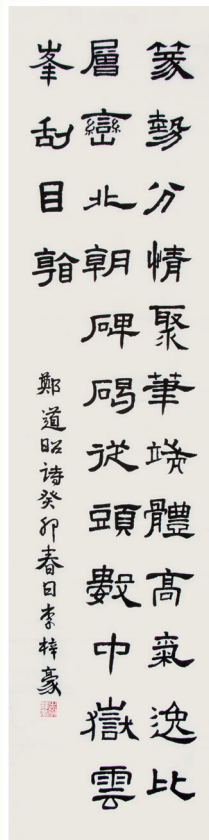 篆勢分情聚筆端體高氣逸比
層巒北朝碑碣從頭數中嶽雲
峯刮目㪟
鄭道昭詩癸卯春日李梓豪